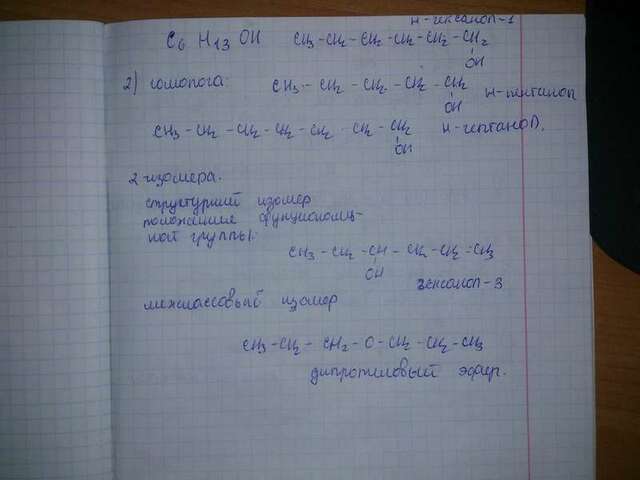 н-гексанол-1
C6 H13 OH CH3-CH2-CH2-CH2-CH2-CH2
OH
2) гомолога: CH3-CH2-CH2-CH2-CH2
OH н-пентанол
CH3-CH2-CH2-CH2-CH2-CH2-CH2 н-гептанол.
OH
2 изомера.
структурний изомер
положение функциональ-
ной группы:
CH3-CH2-CH-CH2-CH2-CH3
OH гексанол-3
межклассовый изомер
CH3-CH2-CH2-O-CH2-CH2-CH3
дипропиловый эфир.